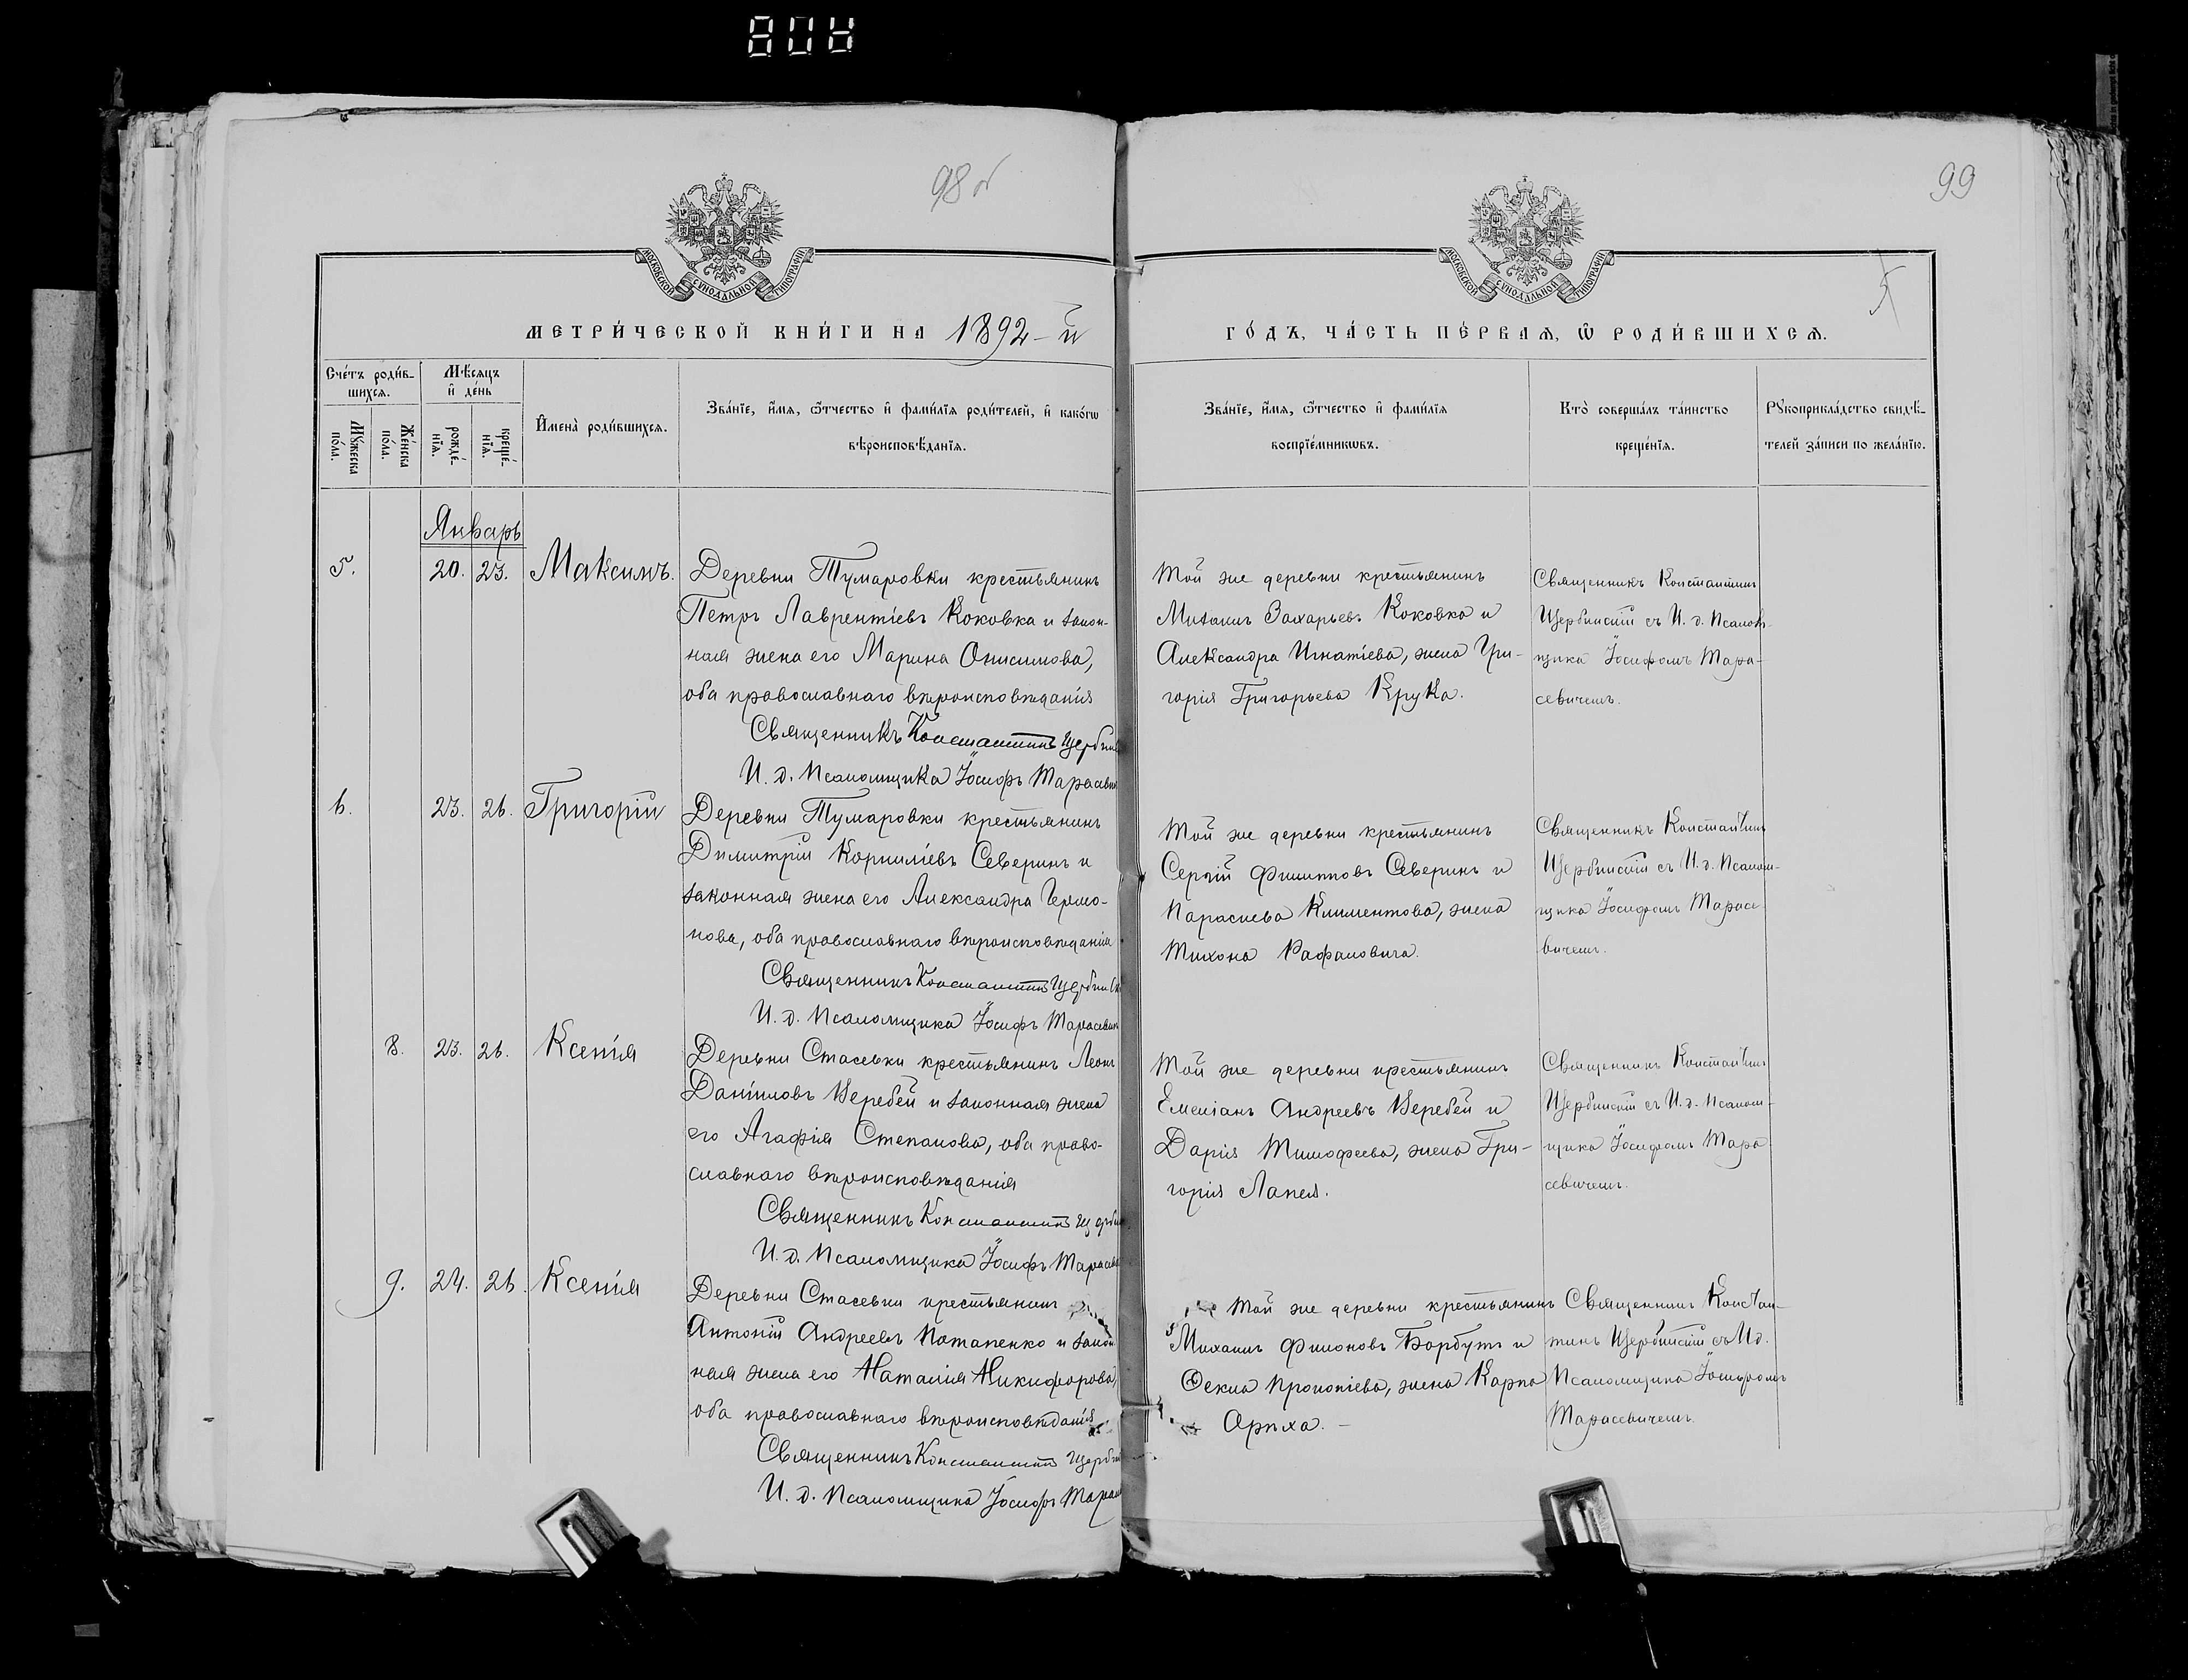 98 об
99
МОСКОВСКОЙ СѴНОДАЛЬНОЙ ТИПОГРАФІИ
МОСКОВСКОЙ СѴНОДАЛЬНОЙ ТИПОГРАФІИ
МЕТРИ́ЧЕСКОЙ КНИ́ГИ НА 1892-й
ГО́ДЪ, ЧА́СТЬ ПЕ́РВАѦ, Ѽ РОДИ́ВШИХСѦ.
Сче́тъ роди́в-
шихсѧ.
Мѣ́сѧцъ
и҆ де́нь
Мꙋ́жеска по́ла.
Же́нска по́ла.
рожде́-
нїѧ.
креще́-
нїѧ.
И҆мена̀ роди́вшихсѧ.
Зва́нїе, и҆́мѧ, ѻ҆́тчество и҆ фами́лїѧ роди́телей, и҆ како́гѡ
вѣроисповѣ́данїѧ.
Зва́нїе, и҆́мѧ, ѻ҆́тчество и҆ фами́лїѧ
воспрїе́мникѡвъ.
Кто̀ соверша́лъ та́инство
креще́нїѧ.
Рꙋкоприкла́дство свидѣ́-
телей за́писи по жела́нїю.
Январь
5. 20. 23. Максимъ.
Деревни Тумаровки крестьянинъ
Петръ Лаврентіевъ Коковка и закон-
ная жена его Марина Онисимова,
оба православнаго вѣроисповѣданія
Священникъ Константинъ
И. д. Псаломщика Іосифъ
Той же деревни крестьянинъ
Захарьевъ Коковка и
Александра Игнатіева, жена Гри-
горія Григорьева Крука.
Священникъ Константинъ
Щербинскій съ И. д. Псалом-
щика Іосифомъ Тара-
севичемъ.
6. 23. 26. Григорій
Деревни Тумаровки крестьянинъ
Димитрій Корниліевъ Северинъ и
законная жена его Александра Гермо-
нова, оба православнаго вѣроисповѣданія
Священникъ Константинъ
И. д. Псаломщика Іосифъ
Той же деревни крестьянинъ
Сергій Филипповъ Северинъ и
Параскева Климентова, жена
Тихона Рафаловича.
Священникъ Константинъ
Щербинскій съ И. д. Псалом-
щика Іосифомъ Тарасе-
вичемъ.
8. 23. 26. Ксенія
Деревни Стасевки крестьянинъ Леонъ
Даніиловъ Веребей и законная жена
его Агафія Степанова, оба право-
славнаго вѣроисповѣданія
Священникъ Константинъ
И. д. Псаломщика Іосифъ
Той же деревни крестьянинъ
Емеліанъ Андреевъ Веребей и
Дарія Тимофеева, жена Гри-
горія Лапея.
Священникъ Константинъ
Щербинскій съ И. д. Псалом-
щика Іосифомъ Тара-
севичемъ.
9. 24. 26. Ксенія
Деревни Стасевки крестьянинъ
Антоній Андреевъ Потапенко и закон-
ная жена его Наталія Никифорова,
оба православнаго вѣроисповѣданія
Священникъ Константинъ
И. д. Псаломщика Іосифъ
Той же деревни крестьянинъ
Михаилъ Филоновъ Борбутъ и
Ѳекла Прокопіева, жена Карпа
Арѣха. -
Священникъ Констан-
тинъ Щербинскій съ И. д.
Псаломщика Іосифомъ
Тарасевичемъ.